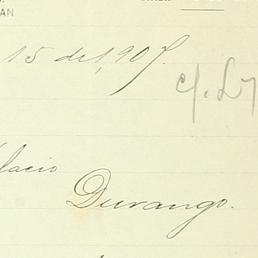 AN
15 de 1,907.
c/. L
lacio
Durango.